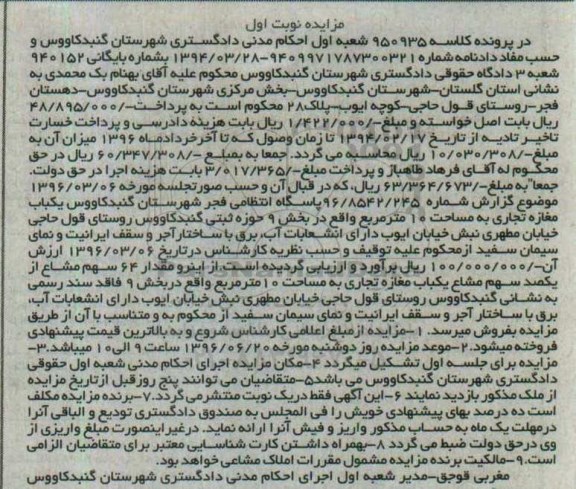 مزایده نوبت اول
در پرونده کلاسه ۹۵۰۹۳۵ شعبه اول احکام مدنی دادگستری شهرستان گنبدکاووس و
حسب مفاد دادنامه شماره ۹۴۰۹۹۷۱۷۸۷۳۰۰۳۲۱-۱۳۹۴/۰۳/۲۸ بشماره بایگانی ۹۴۰۱۵۲
شعبه ۳ دادگاه حقوقی دادگستری شهرستان گنبدکاووس محکوم علیه آقای بهنام بک محمدی به
نشانی استان گلستان-شهرستان گنبدکاووس-بخش مرکزی شهرستان گنبدکاووس-دهستان
فجر-روستای قول حاجی-کوچه ایوب-پلاک۲۸ محکوم است به پرداخت-/۴۸/۸۹۵/۰۰۰
ریال بابت اصل خواسته و مبلغ-/۱/۴۲۲/۰۰۰ ریال بابت هزینه دادرسی و پرداخت خسارت
تاخیر تادیه از تاریخ ۱۳۹۴/۰۲/۱۷ تا زمان وصول که تا آخرخردادماه ۱۳۹۶ میزان آن به
مبلغ-/۱۰/۰۳۰/۳۰۸ ریال محاسبه می گردد. جمعا به بمبلغ -/۶۰/۳۴۷/۳۰۸ ریال در حق
محکوم له آقای فرهاد طاهباز و پرداخت مبلغ-/۳/۰۱۷/۳۶۵ بابت هزینه اجرا در حق دولت.
جمعا"به مبلغ-/۶۳/۳۶۴/۶۷۳ ریال، که در قبال آن و حسب صورتجلسه مورخه ۱۳۹۶/۰۳/۰۶
موضوع گزارش شماره ۹۶/۸۵۴۲/۲۴۵پاسگاه انتظامی فجر شهرستان گنبدکاووس یکباب
مغازه تجاری به مساحت ۱۰ مترمربع واقع در بخش ۹ حوزه ثبتی گنبدکاووس روستای قول حاجی
خیابان مطهری نبش خیابان ایوب دارای انشعابات آب، برق با ساختارآجر و سقف ایرانیت و نمای
سیمان سفید ازمحکوم علیه توقیف و حسب نظریه کارشناس درتاریخ ۱۳۹۶/۰۳/۰۶ ارزش
آن-/۱۰۰/۰۰۰/۰۰۰ ریال برآورد و ارزیابی گردیده است. از اینرو مقدار ۶۴ سهم مشاع از
یکصد سهم مشاع یکباب مغازه تجاری به مساحت ۱۰مترمربع واقع دربخش ۹ فاقد سند رسمی
به نشانی گنبدکاووس روستای قول حاجی خیابان مطهری نبش خیابان ایوب دارای انشعابات آب،
برق با ساختار آجر و سقف ایرانیت و نمای سیمان سفید از محکوم به و متناسب با آن از طریق
مزایده بفروش میرسد. ۱-مزایده ازمبلغ اعلامی کارشناس شروع و به بالاترین قیمت پیشنهادی
فروخته میشود.۲-موعد مزایده روز دوشنبه مورخه ۱۳۹۶/۰۶/۲۰ ساعت ۹ الی۱۰ میباشد.۳-
مزایده برای جلسه اول تشکیل میگردد ۴-مکان مزایده اجرای احکام مدنی شعبه اول حقوقی
دادگستری شهرستان گنبدکاووس می باشد۵-متقاضیان می توانند پنج روزقبل ازتاریخ مزایده
از ملک مذکور بازدید نمایند ۶-این آگهی فقط دریک نوبت منتشرمی گردد.۷-برنده مزایده مکلف
است ده درصد بهای پیشنهادی خویش را فی المجلس به صندوق دادگستری تودیع و الباقی آنرا
درمهلت یک ماه به حساب مذکور واریز و فیش آنرا ارائه نماید. درغیراینصورت مبلغ واریزی از
وی درحق دولت ضبط می گردد ۸-بهمراه داشتن کارت شناسایی معتبر برای متقاضیان الزامی
است.۹-مالکیت برنده مزایده مشمول مقررات املاک مشاعی خواهد بود.
مغربی قوجق-مدیر شعبه اول اجرای احکام مدنی دادگستری شهرستان گنبدکاووس